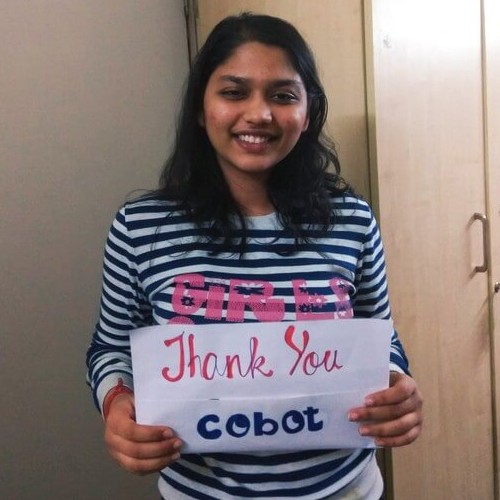 GIRLS
Thank You
cobot